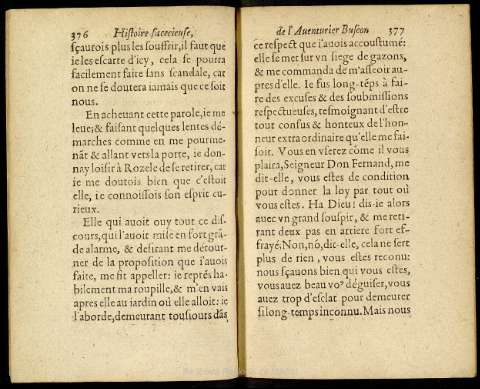 376 Histoire facecieuse,
sçaurois plus les souffrir, il faut que
ie les escarte d'icy, cela se pourra
facilement faire sans scandale, car
on ne se doutera iamais que ce soit
nous.
En acheuant cette parole, ie me
leue; & faisant quelques lentes dé-
marches comme en me pourme-
nãt & allant vers la porte, ie don-
nay loisir à Rozele de se retirer, car
ie me doutois bien que c'estoit
elle, ie connoissois son esprit cu-
rieux.
Elle qui auoit ouy tout ce dis-
cours, qui l'auoit mise en fort grã-
de alarme, & desirant me détour-
ner de la proposition que i'auois
faite, me fit appeller: ie représ ha-
bilement ma roupille, & m'en vais
apres elle au iardin où elle alloit: ie
l'aborde, demeurant tousiours dãs
de l'Auenturier Buscon 377
ce respect que i'auois accoustumé:
elle se met sur vn siege de gazons,
& me commanda de m'asseoir au-
pres d'elle. Ie fus long-téps à fai-
re des excuses & des soubmissions
respectueuses, tesmoignant d'estre
tout confus & honteux de l'hon-
neur extraordinaire qu'elle me fai-
soit. Vous en vserez come il vous
plaira, Seigneur Don Fernand, me
dit-elle, vous estes de condition
pour donner la loy par tout où
vous estes. Ha Dieu! dis-ie alors
auec vn grand souspir, & me reti-
rant deux pas en arriere fort ef-
frayé: Non, nó, dic-elle, cela ne sert
plus de rien, vous estes reconu:
nous sçauons bien qui vous estes,
vous auez beau vo⁹ déguiser, vous
auez trop d'esclat pour demeurer
si long-temps inconnu. Mais nous